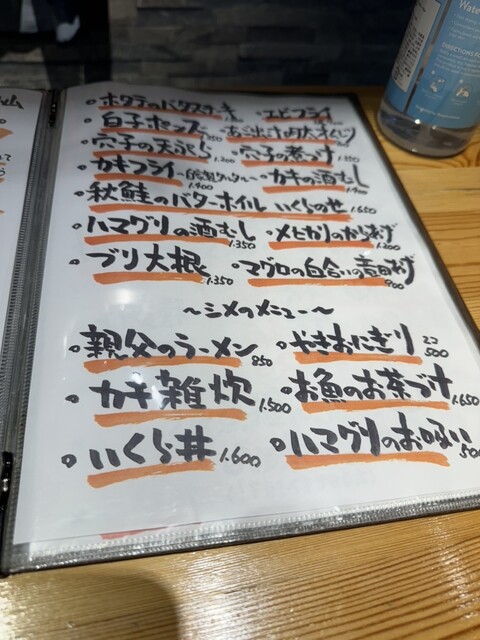 ホタテのバタステーキ
エビフライ
白子ポンズ 1.350
穴子の天ぷら 1.200
穴子の煮つけ 1.350
カキフライ 1.400
カキの酒むし 1.400
秋鮭のバターホイル いくらのせ 1.650
ハマグリの酒むし 1.350
メヒカリのからあげ 1.200
ブリ大根 1.350
マグロの白合いの煮つけ 900
～シメのメニュー～
親父のラーメン 850
やきおにぎり 2コ 500
カキ雑炊 1.500
お魚のお茶づけ 1.650
いくら丼 1.600
ハマグリのお吸い
Wate
DIRECTIONS FO